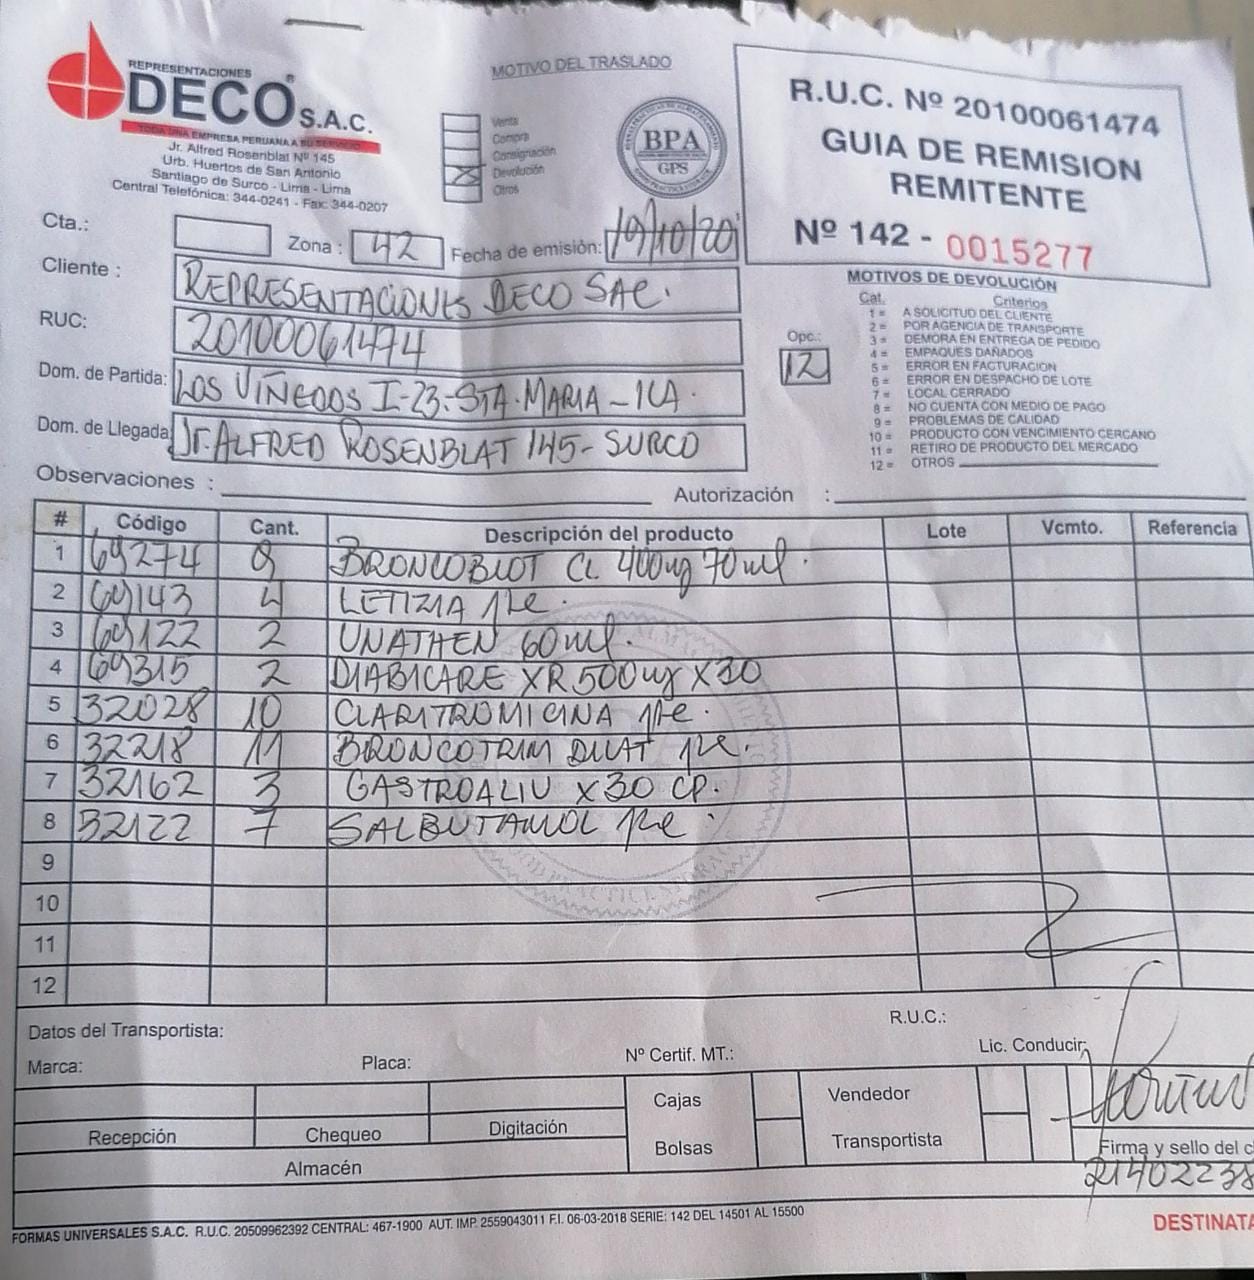 REPRESENTACIONES
DECO S.A.C.
®
TODA UNA EMPRESA PERUANA A SU SERVICIO
Jr. Alfred Rosenblat Nº 145
Urb. Huertos de San Antonio
Santiago de Surco - Lima - Lima
Central Telefónica: 344-0241 - Fax: 344-0207
MOTIVO DEL TRASLADO
Venta
Compra
Consignación
Devolución
Otros
BPA
GPS
R.U.C. Nº 20100061474
GUIA DE REMISION
REMITENTE
Nº 142 - 0015277
Cta.:
Zona : 42
Fecha de emisión: 19/10/20
Cliente : REPRESENTACIONES DECO SAC.
RUC: 20100061474
Dom. de Partida: LOS VIÑEDOS I-23-STA. MARIA - ICA.
Dom. de Llegada Jr. ALFRED ROSENBLAT 145 - SURCO
MOTIVOS DE DEVOLUCIÓN
Cat. Criterios
1 = A SOLICITUD DEL CLIENTE
2 = POR AGENCIA DE TRANSPORTE
3 = DEMORA EN ENTREGA DE PEDIDO
4 = EMPAQUES DAÑADOS
5 = ERROR EN FACTURACION
6 = ERROR EN DESPACHO DE LOTE
7 = LOCAL CERRADO
8 = NO CUENTA CON MEDIO DE PAGO
9 = PROBLEMAS DE CALIDAD
10 = PRODUCTO CON VENCIMIENTO CERCANO
11 = RETIRO DE PRODUCTO DEL MERCADO
12 = OTROS
Opc.: 12
Observaciones :
Autorización :
# Código Cant. Descripción del producto Lote Vcmto. Referencia
1 69274 9 BRONCOBLOT CL 400mg 70ml.
2 69143 4 LETIZIA 1Pe.
3 69122 2 UNATHEN 60ml.
4 69315 2 DIABICARE XR 500mg X30
5 32028 10 CLARITROMICINA 1Pe.
6 32218 11 BRONCOTRIM DILAT 1Pe.
7 32162 3 GASTROALIV X30 CP.
8 32122 7 SALBUTAMOL 1Pe.
9
10
11
12
Datos del Transportista:
R.U.C.:
Marca:
Placa:
Nº Certif. MT.:
Lic. Conducir:
Cajas
Bolsas
Vendedor
Transportista
Recepción
Chequeo
Digitación
Almacén
Firma y sello del c
21402238
FORMAS UNIVERSALES S.A.C. R.U.C. 20509962392 CENTRAL: 467-1900 AUT. IMP. 2559043011 F.I. 06-03-2018 SERIE: 142 DEL 14501 AL 15500
DESTINATA